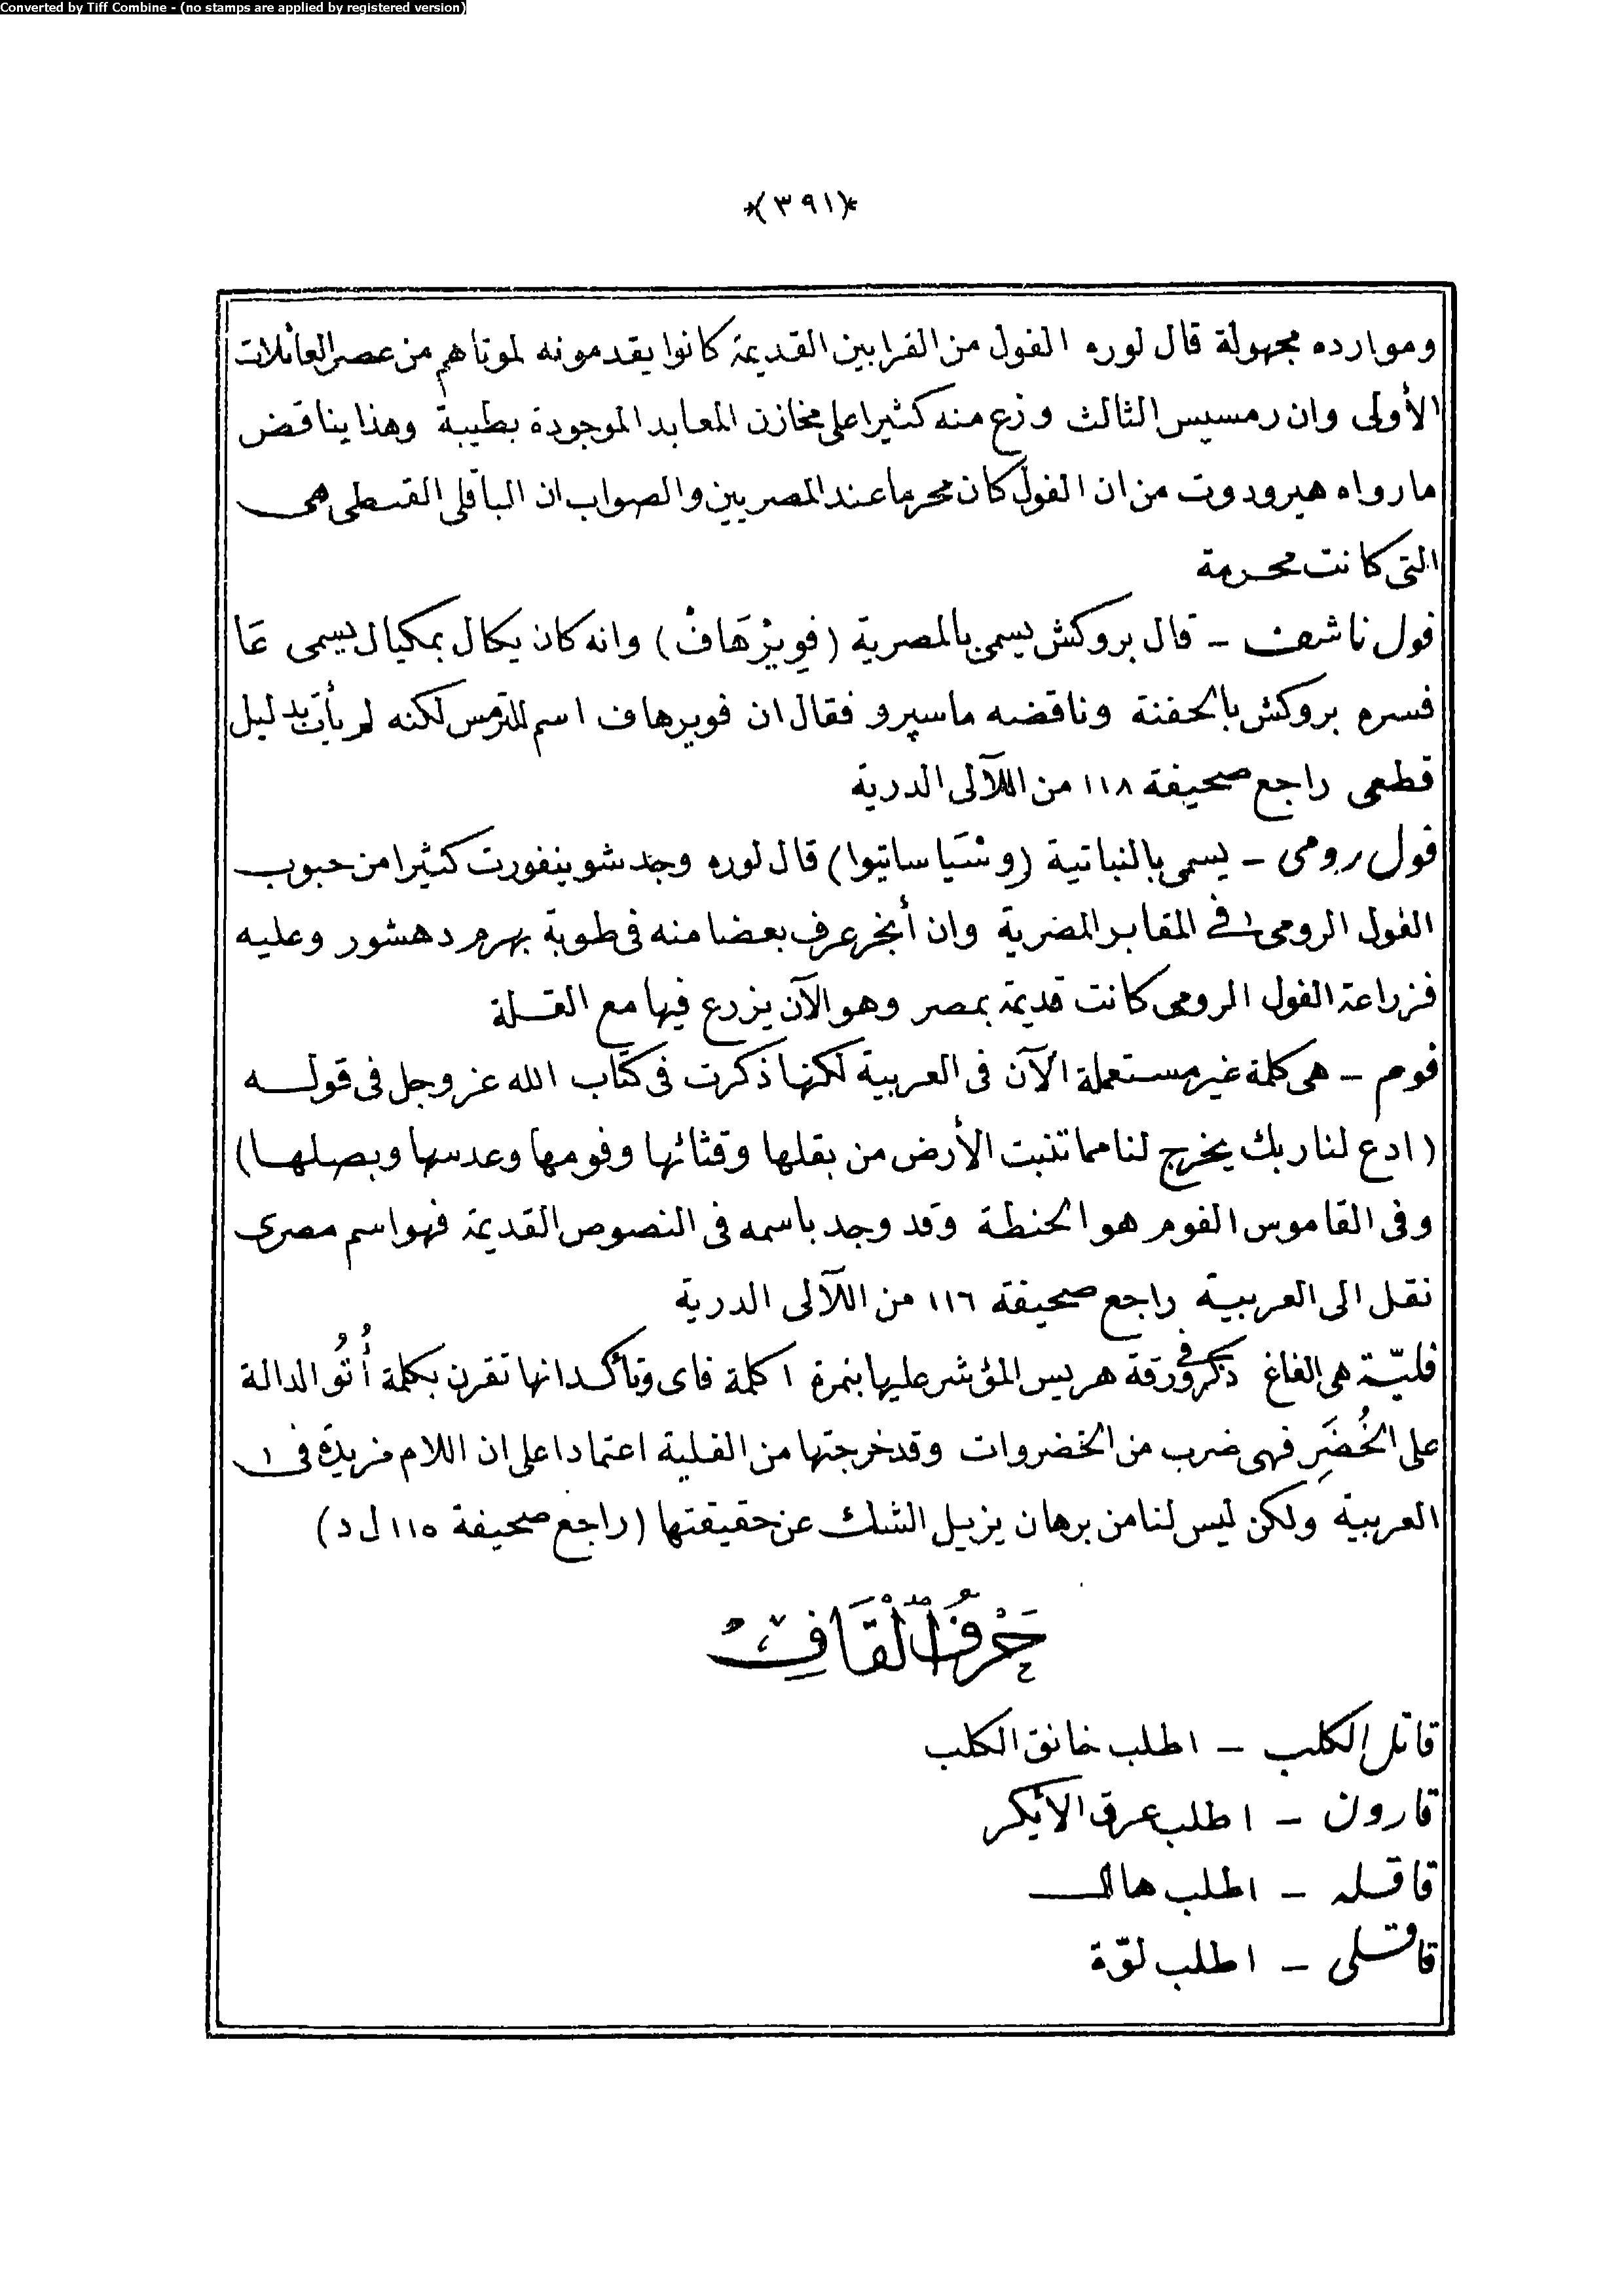 Converted by Tiff Combine - (no stamps are applied by registered version)
*(٣٩١)*
وموارده مجهولة قال لوره الفول من القرابين القديمة كانوا يقدمونه لموتاهم من عصر العائلات
الأولى وان رمسيس الثالث وزع منه كثيرا على مخازن المعابد الموجودة بطيبة وهذا يناقض
ما رواه هيرودوت من ان الفول كان محرما عند المصريين والصواب ان الباقلى القبطى هى
التى كانت محرمة
فول ناشف – قال بروكش يسمى بالمصرية (فويرْهَافْ) وانه كان يكال بمكيال يسمى عَا
فسره بروكش بالحفنة وناقضه ماسپرو فقال ان فويرهاف اسم للترمس لكنه لم يأت بدليل
قطعى راجع صحيفة ١١٨ من اللآلى الدرية
فول رومى – يسمى بالنباتية (وشيَا ساتيوا) قال لوره وجد شوينفورت كثيرا من حبوب
الفول الرومى فى المقابر المصرية وان أنجر عرف بعضا منه فى طوبة بهرم دهشور وعليه
فزراعة الفول الرومى كانت قديمة بمصر وهو الآن يزرع فيها مع القلة
فوم – هى كلمة غير مستعملة الآن فى العربية لكنها ذكرت فى كتاب الله عز وجل فى قوله
(ادع لنا ربك يخرج لنا مما تنبت الأرض من بقلها وقثائها وفومها وعدسها وبصلها)
وفى القاموس الفوم هو الحنطة وقد وجد باسمه فى النصوص القديمة فهو اسم مصرى
نقل الى العربية راجع صحيفة ١١٦ من اللآلى الدرية
فليّة هى الفاغ ذكر فى ورقة هريس المؤشر عليها بنمرة ١ كلمة فاى وتأكد انها تقرن بكلمة أُتُو الدالة
على الخُضَرِ فهى ضرب من الخضروات وقد خرجتها من الفلية اعتمادا على ان اللام مزيدة فى
العربية ولكن ليس لنا من برهان يزيل الشك عن حقيقتها (راجع صحيفة ١١٥ ل د)
حَرْفُ الْقَافِ
قاتل الكلب – اطلب خانق الكلب
قارون – اطلب عرق الايكر
قاقله – اطلب هال
قاقلى – اطلب لوّة